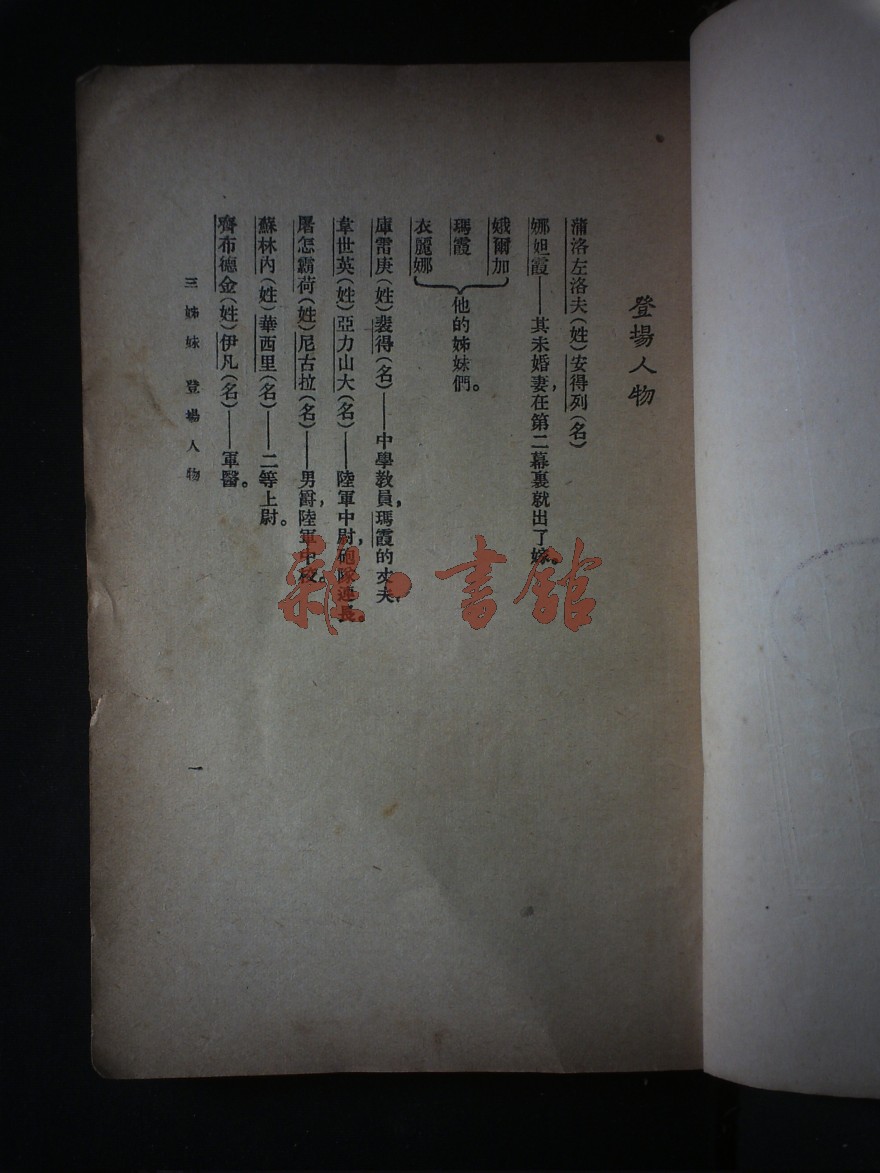 登場人物
蒲洛左洛夫(姓)安得列(名)
娜妲霞——其未婚妻,在第二幕裏就出了嫁。
娥爾加
瑪霞
衣麗娜
他的姊妹們。
庫雷庚(姓)裴得(名)——中學教員,瑪霞的丈夫,
韋世英(姓)亞力山大(名)——陸軍中尉,砲隊連長。
屠怎霸荷(姓)尼古拉(名)——男爵,陸軍中校。
蘇林內(姓)華西里(名)——二等上尉。
齊布德金(姓)伊凡(名)——軍醫。
三姊妹 登場人物
一
雜·書館